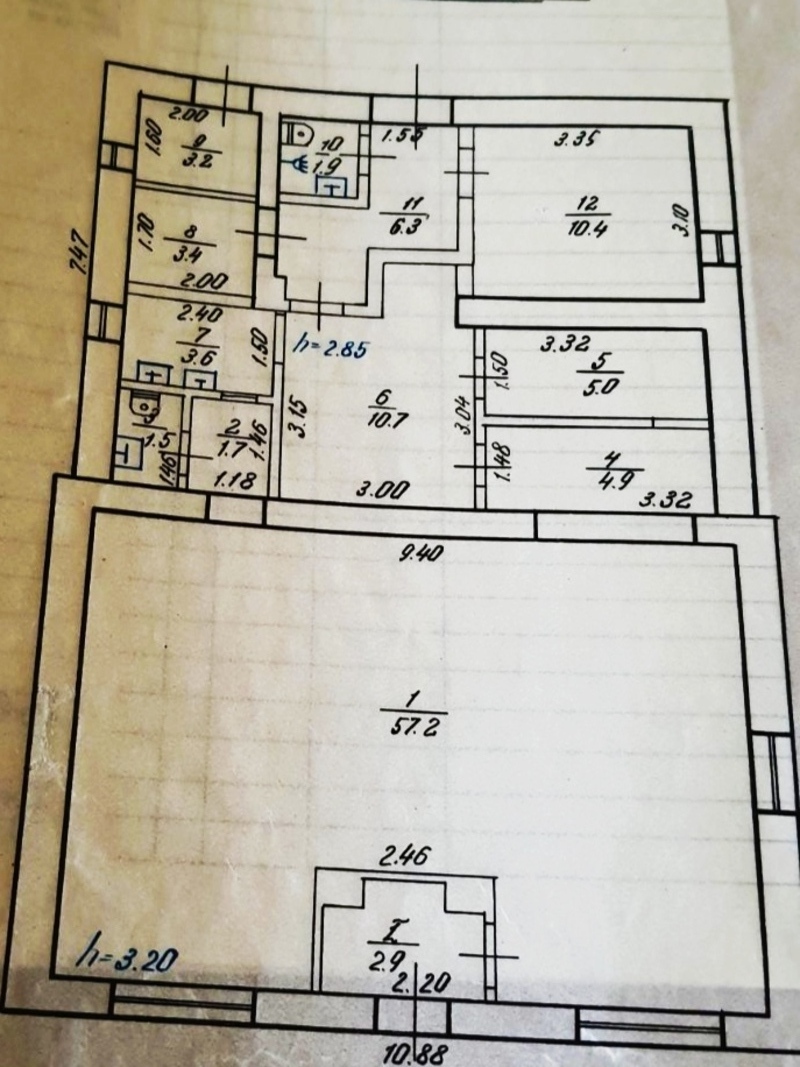 2.00
1.60
9
3.2
10
1.9
1.55
3.35
11
6.3
12
10.4
3.10
7.47
1.70
8
3.4
2.00
2.40
7
3.6
1.50
h=2.85
3.32
5
5.0
1.50
6
10.7
3.15
3.04
3.00
1.5
1.46
2
1.7
1.46
1.18
4
4.9
1.48
3.32
9.40
1
57.2
2.46
I
2.9
2.20
h=3.20
10.88